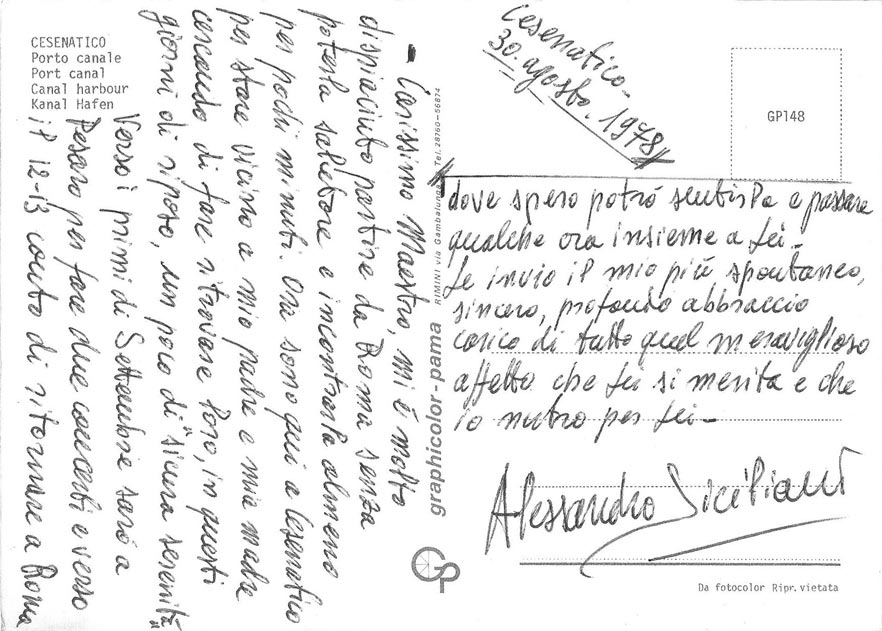 CESENATICO
Porto canale
Port canal
Canal harbour
Kanal Hafen
Cesenatico -
30. agosto. 1978
GP148
- Carissimo Maestro, mi è molto
dispiaciuto partire da Roma senza
poterla salutare e incontrarla almeno
per pochi minuti. Ora sono qui a Cesenatico
per stare vicino a mio padre e mia madre
cercando di fare ritrovare loro, in questi
giorni di riposo, un poco di "sicura serenità"
Verso i primi di Settembre sarò a
Pesaro per fare due concerti e verso
il 12-13 conto di ritornare a Roma
dove spero potrò sentirLa e passare
qualche ora insieme a Lei -
Le invio il mio più spontaneo,
sincero, profondo abbraccio
carico di tutto quel meraviglioso
affetto che Lei si merita e che
io nutro per Lei -
Alessandro Siciliani
graphicolor-dama RIMINI via Gambalunga Tel. 28760-56874
GP
Da fotocolor Ripr. vietata